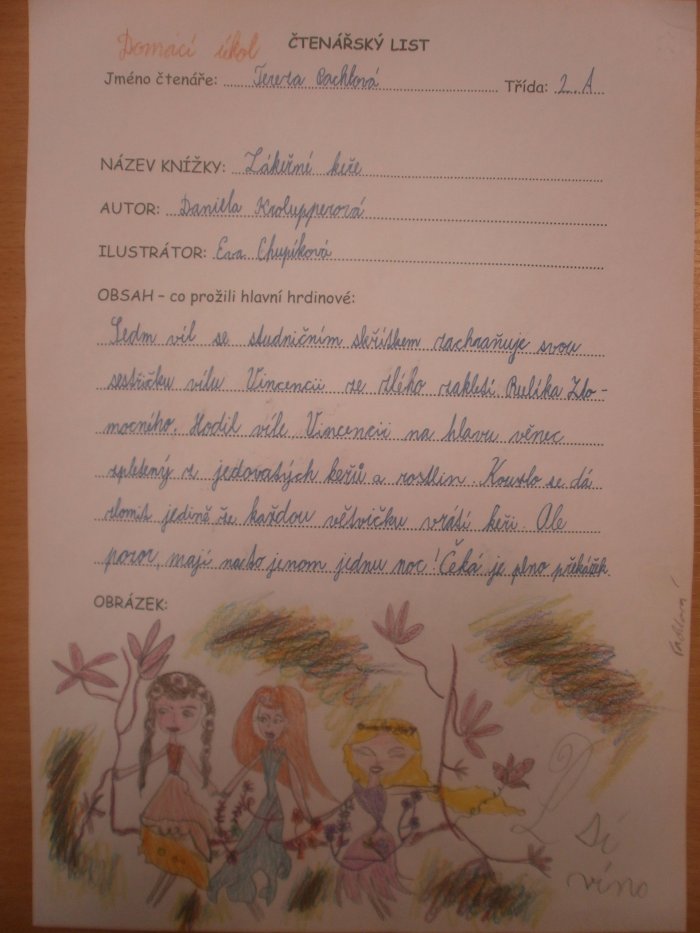 Domácí úkol
ČTENÁŘSKÝ LIST
Jméno čtenáře: Tereza Pachlová Třída: 2. A
NÁZEV KNÍŽKY: Zákeřné keře
AUTOR: Daniela Krolupperová
ILUSTRÁTOR: Eva Chupíková
OBSAH – co prožili hlavní hrdinové:
Sedm víl se studničním skřítkem zachraňuje svou
sestřičku vílu Vincencii ze zlého zakletí Rulíka Zlo-
mocného. Hodil víle Vincencii na hlavu věnec
spletený z jedovatých keřů a rostlin. Kouzlo se dá
zlomit jedině že každou větvičku vrátí keři. Ale
pozor, mají na to jenom jednu noc! Čeká je plno překážek.
OBRÁZEK: